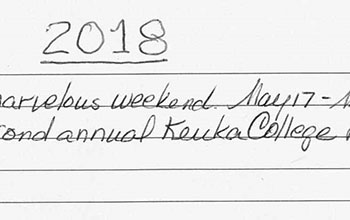 2018
marvelous weekend. May 17 -
second annual Keuka College